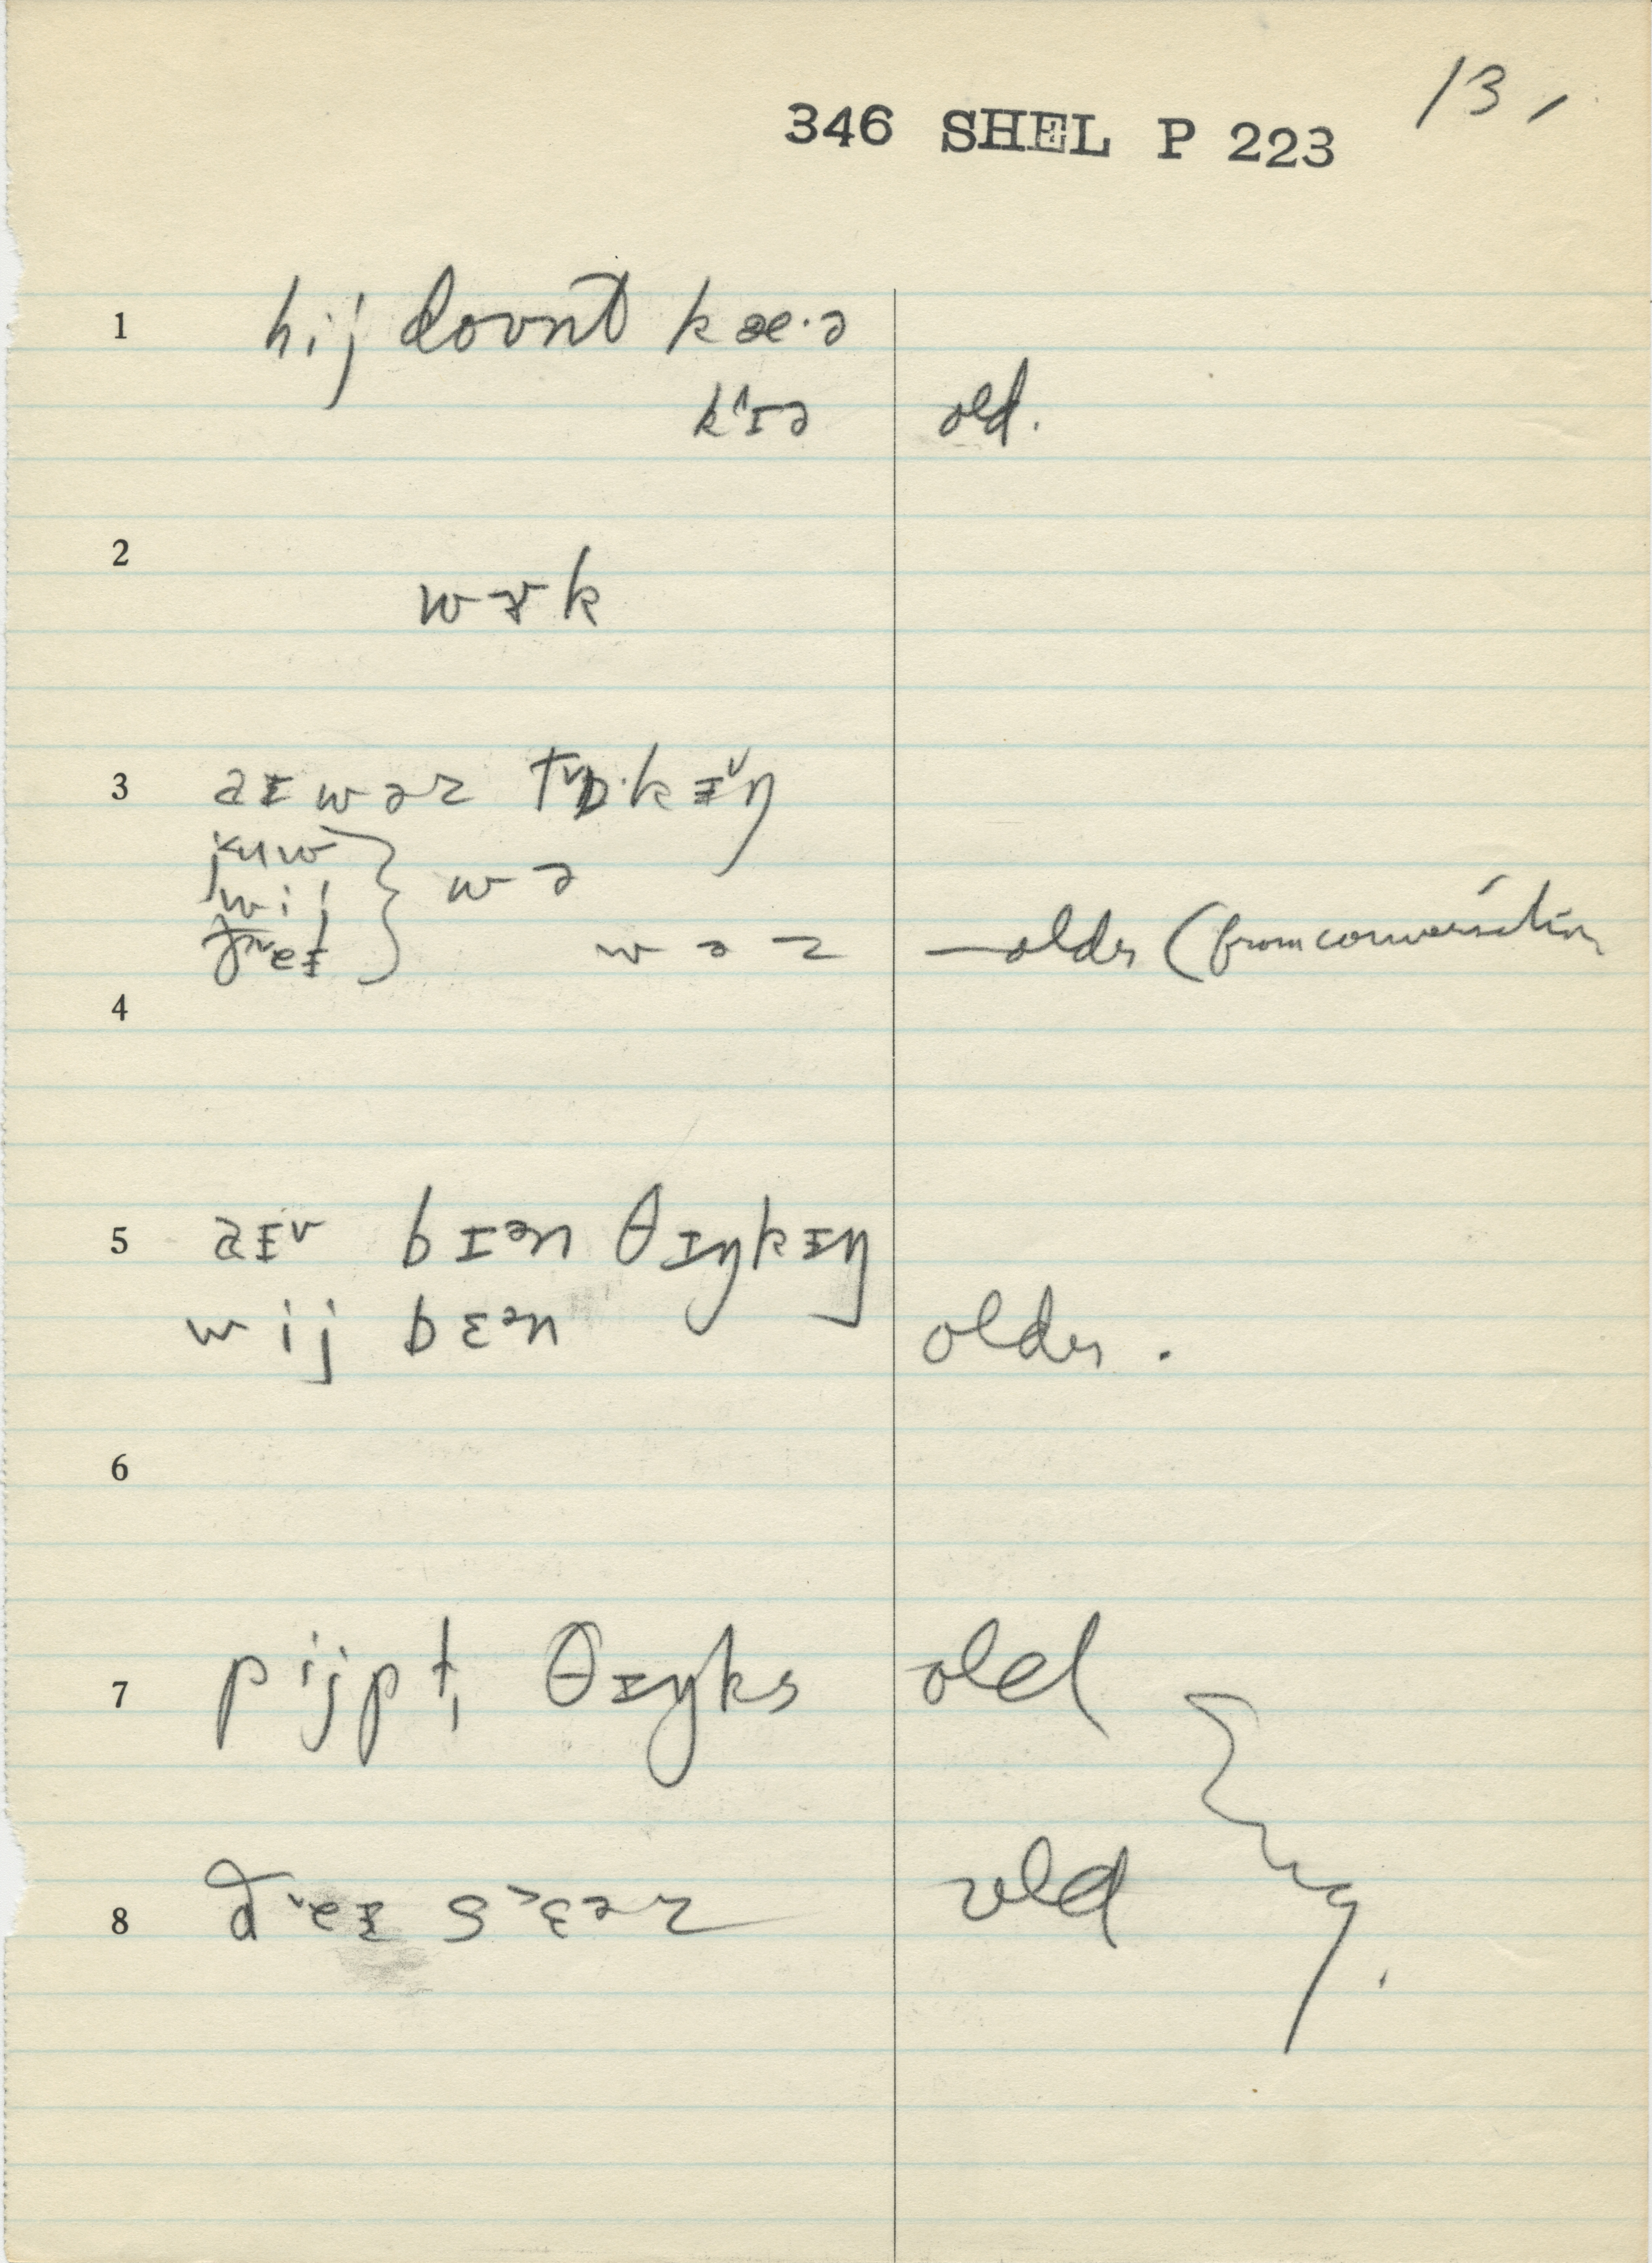 13,
346 SHEL P 223
1 hij doʊnt kæ·ə
k˄ɪə old.
2 wɚk
3 aɪ wəz tɒ·kɪŋ
juw
wij } wə
ðeɪ wəz — older (from conversation
4
5 aɪv bɪən θɪŋkɪŋ
wij bɛən older.
6
7 pijpt̩ θɪŋks old
8 ðeɪ sɛəz old